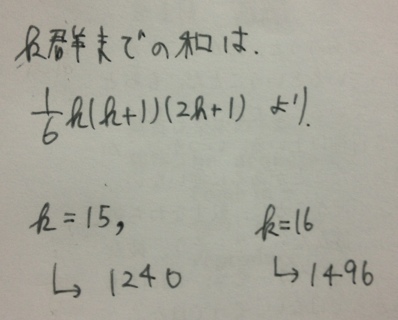 k群までの和は.
1/6 k(k+1)(2k+1) より.
k=15, k=16
↳ 1240 ↳ 1496